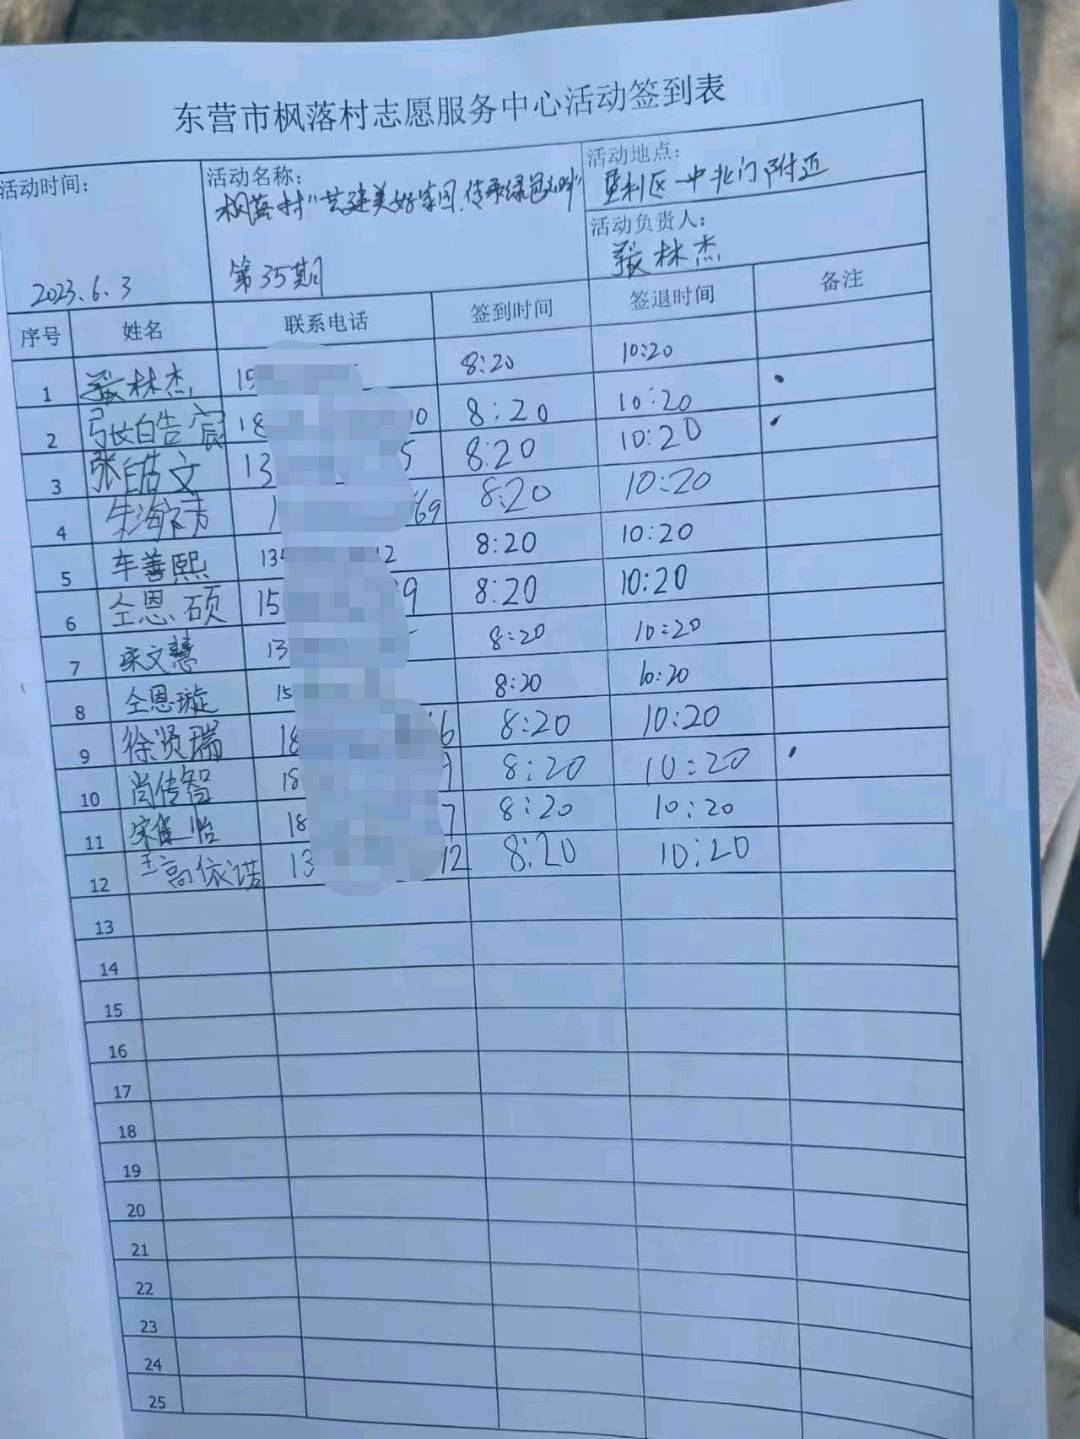 东营市枫落村志愿服务中心活动签到表
活动时间: 2023.6.3
活动名称: 枫落村"共建美好家园,传承绿色文明" 第35期
活动地点: 垦利区一中北门附近
活动负责人: 张林杰
序号 姓名 联系电话 签到时间 签退时间 备注
1 张林杰 15 8:20 10:20
2 张皓宸 18 0 8:20 10:20
3 张皓文 13 5 8:20 10:20
4 朱海 1 69 8:20 10:20
5 车善熙 13 2 8:20 10:20
6 仝恩硕 15 9 8:20 10:20
7 宋文慧 13 8:20 10:20
8 仝恩璇 15 8:20 10:20
9 徐贤瑞 18 6 8:20 10:20
10 尚传智 18 8:20 10:20
11 宋佳怡 18 7 8:20 10:20
12 王高依诺 13 12 8:20 10:20
13
14
15
16
17
18
19
20
21
22
23
24
25